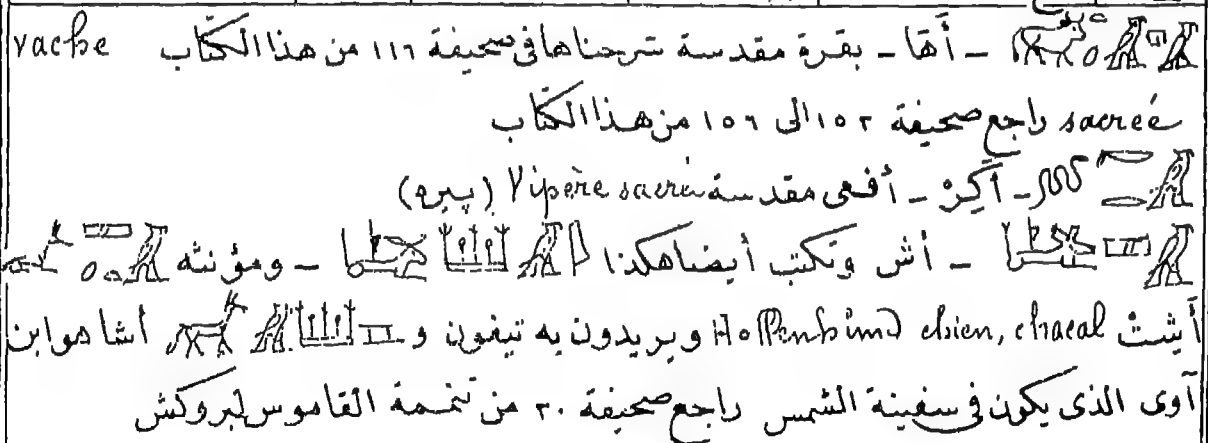 𓄿𓉔𓄿𓏏𓃒 - أَهَا - بقرة مقدسة شرحناها فى صحيفة ١١٦ من هذا الكتاب vache
sacrée راجع صحيفة ١٥٢ الى ١٥٦ من هذا الكتاب
- آكِرْ - أفعى مقدسة Vipère sacrée (بيره)
- أش وتكتب أيضا هكذا - ومؤنثه
أيشتْ Hollenhund chien, chacal ويريدون به تيفون و أشا هو ابن
آوى الذى يكون فى سفينة الشمس راجع صحيفة ٢٠ من تتمة القاموس لبروكش